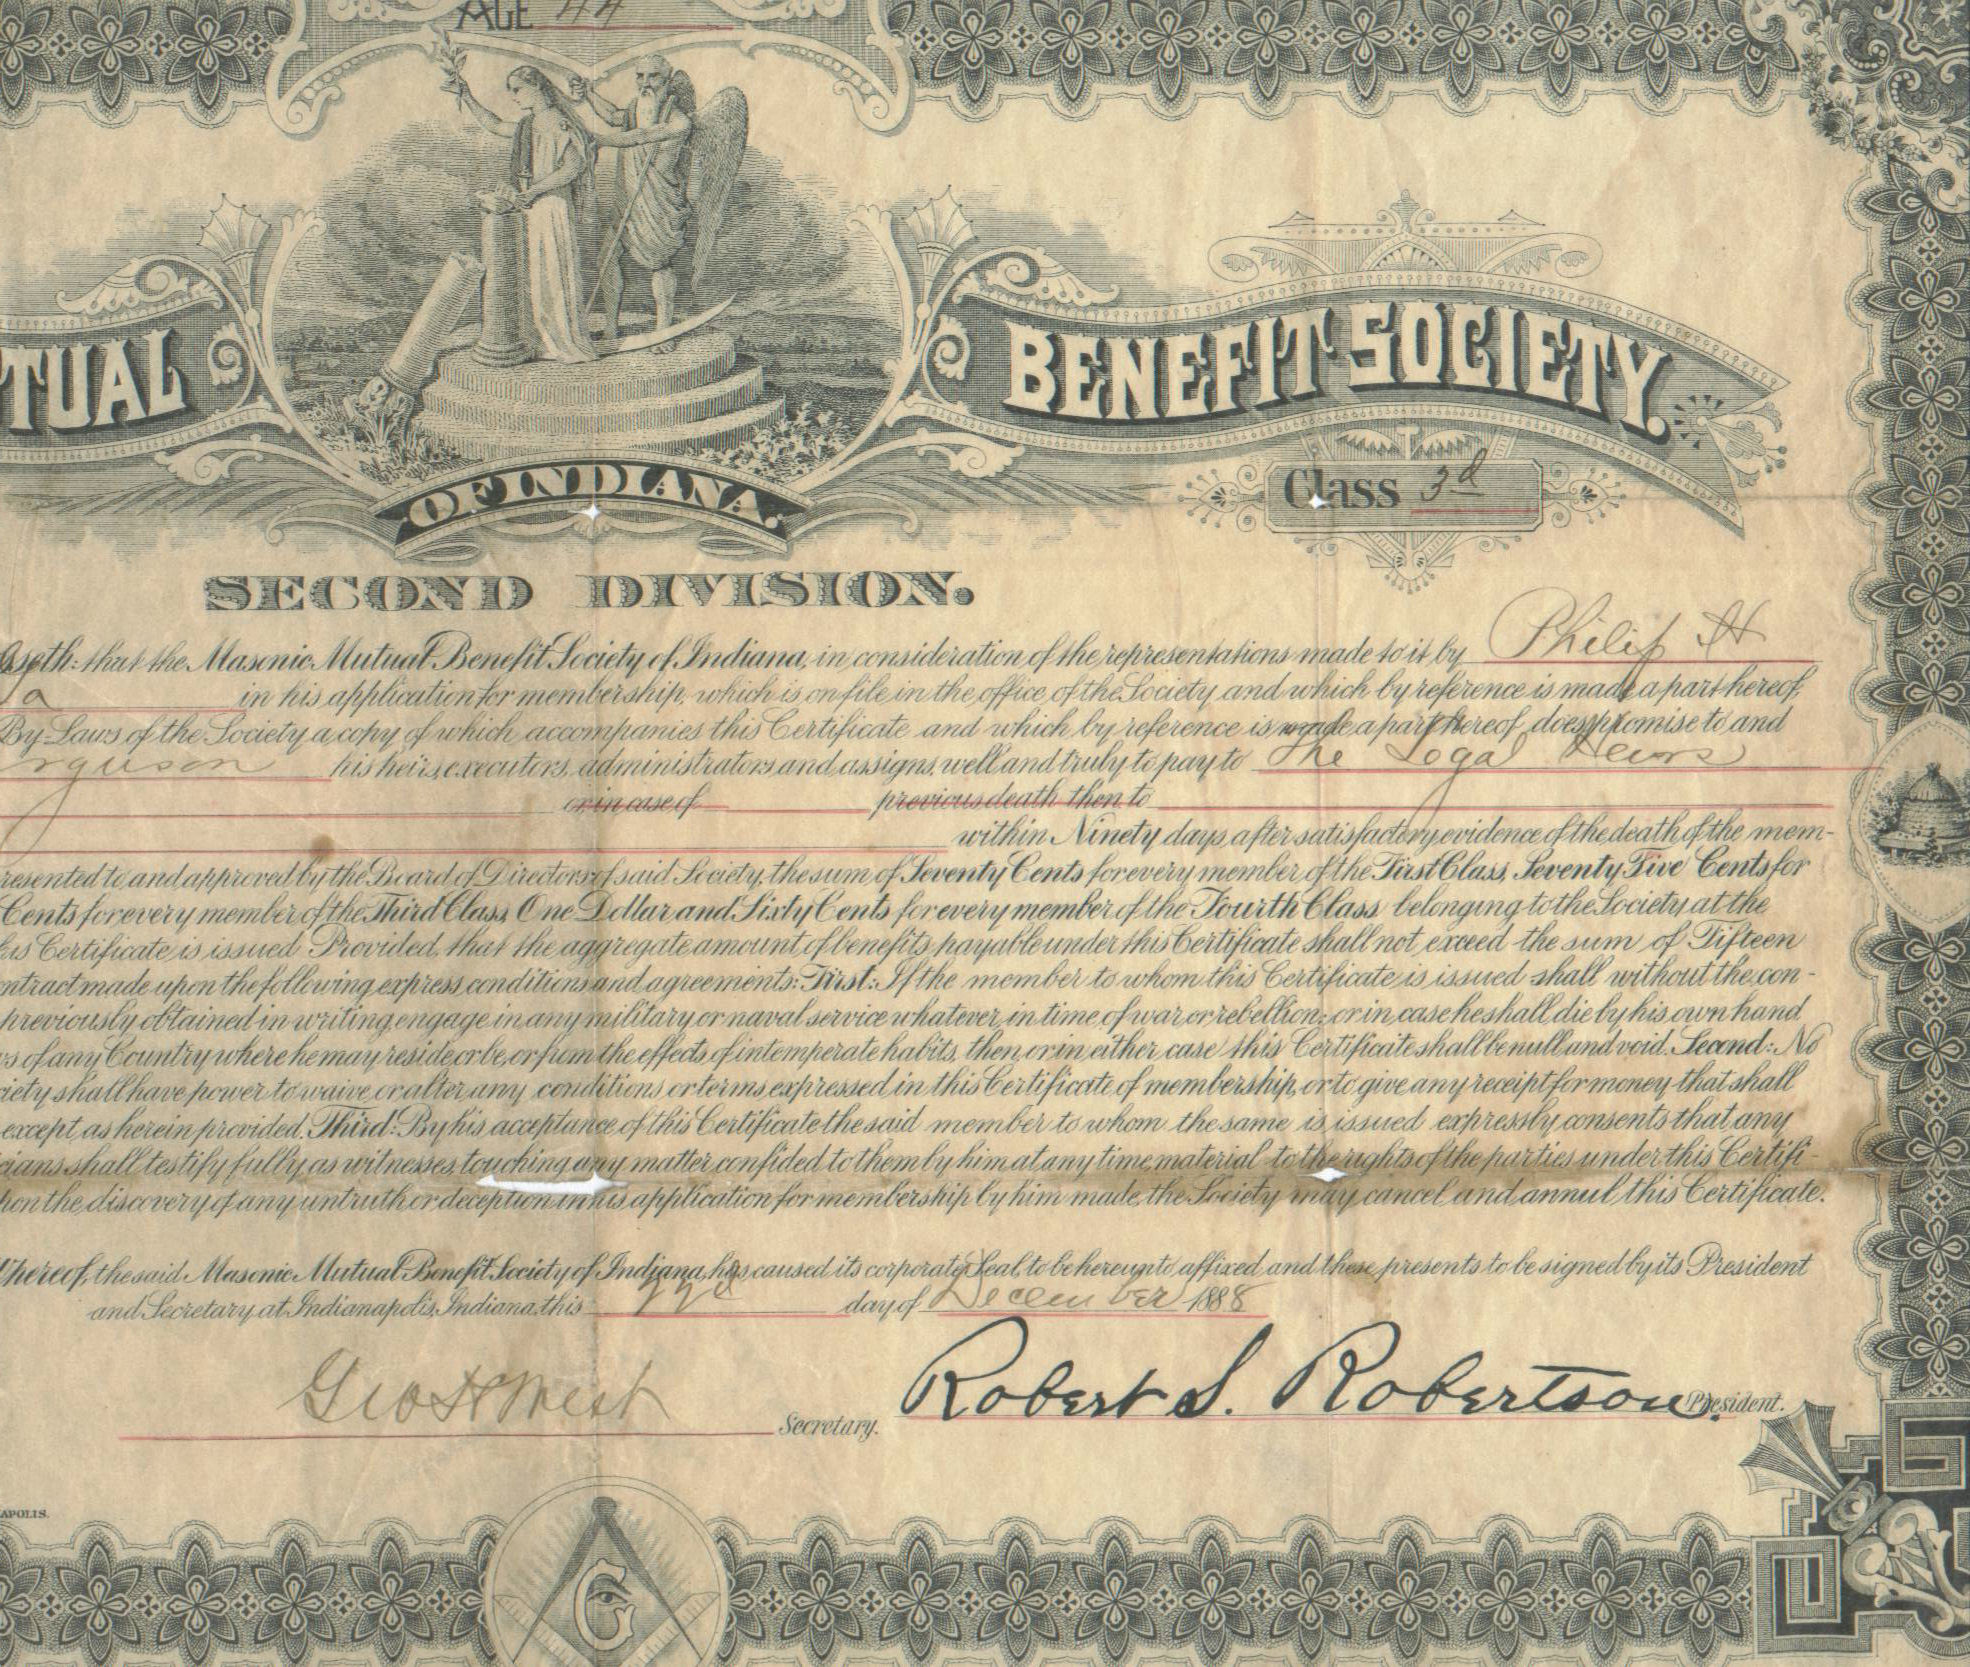 AGE 44
TUAL BENEFIT SOCIETY.
OF INDIANA.
Class 3d
SECOND DIVISION.
sseth: that the Masonic Mutual Benefit Society of Indiana, in consideration of the representations made to it by Philip H
in his application for membership, which is on file in the office of the Society and which by reference is made a part hereof,
By-Laws of the Society a copy of which accompanies this Certificate and which by reference is made a part hereof does promise to and
rguson his heirs, executors, administrators and assigns, well and truly to pay to The Legal Heirs
or in case of previous death then to
within Ninety days after satisfactory evidence of the death of the mem-
resented to and approved by the Board of Directors of said Society, the sum of Seventy Cents for every member of the First Class, Seventy Five Cents for
Cents for every member of the Third Class, One Dollar and Sixty Cents for every member of the Fourth Class belonging to the Society at the
his Certificate is issued Provided, that the aggregate amount of benefits payable under this Certificate shall not exceed the sum of Fifteen
ntract made upon the following express conditions and agreements: First: If the member to whom this Certificate is issued shall without the con-
previously obtained in writing, engage in any military or naval service whatever, in time of war or rebellion; or in case he shall die by his own hand
ws of any Country where he may reside or be, or from the effects of intemperate habits, then, or in either case this Certificate shall be null and void. Second: No
ciety shall have power to waive or alter any conditions or terms expressed in this Certificate of membership, or to give any receipt for money that shall
except, as herein provided. Third: By his acceptance of this Certificate the said member to whom the same is issued expressly consents that any
cians shall testify fully as witnesses, touching any matter confided to them by him at any time, material to the rights of the parties under this Certifi-
pon the discovery of any untruth or deception in his application for membership by him made, the Society may cancel and annul this Certificate.
Whereof, the said Masonic Mutual Benefit Society of Indiana, has caused its corporate Seal, to be hereunto affixed and these presents to be signed by its President
and Secretary at Indianapolis, Indiana, this 22d day of December 1888
Geo H West Secretary. Robert S. Robertson President.
APOLIS.
G